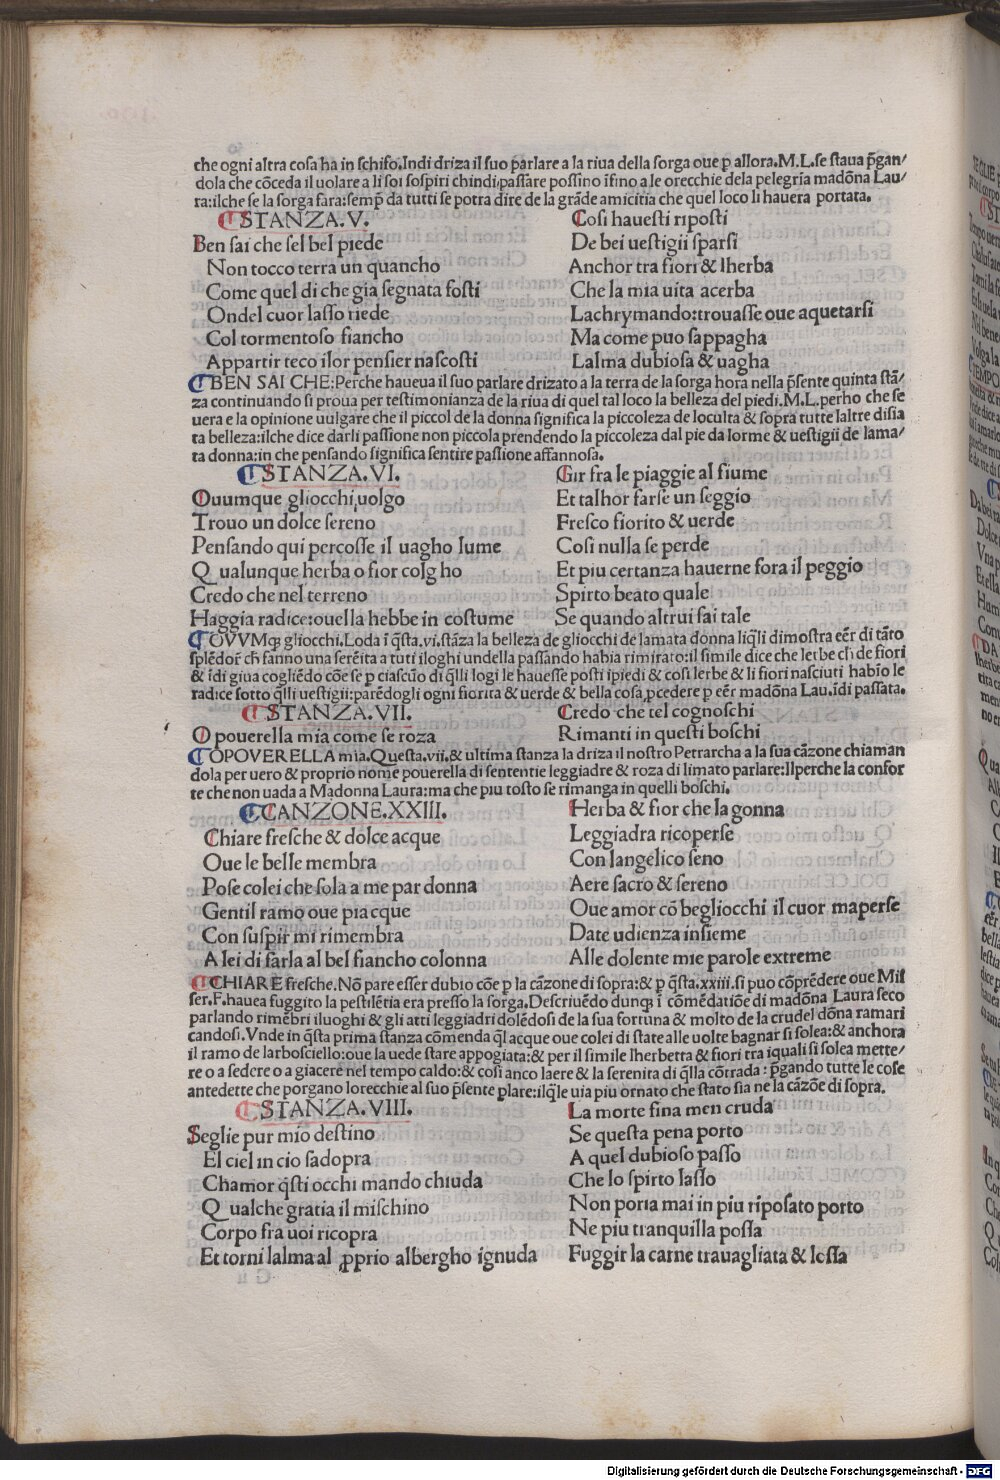 che ogni altra cosa ha in schifo.Indi driza il suo parlare a la riua della sorga oue p allora.M.L.se staua p̄gan/
dola che cōceda il uolare a li soi sospiri chindi passare possino īfino a le orecchie dela pelegrīa madōna Lau/
ra:ilche se la sorga fara:semp̄ da tutti se potra dire de la grāde amicitia che quel loco li hauera portata.
STANZA.V.
Ben sai che sel bel piede
Non tocco terra un quancho
Come quel di che gia segnata fosti
Ondel cuor lasso riede
Col tormentoso fiancho
Appartir teco ilor pensier nascosti
Cosi hauesti riposti
De bei uestigii sparsi
Anchor tra fiori & lherba
Che la mia uita acerba
Lachrymando:trouasse oue aquetarsi
Ma come puo sappagha
Lalma dubiosa & uagha
BEN SAI CHE:Perche haueua il suo parlare drizato a la terra de la sorga hora nella p̄sente quinta stā/
za continuando si proua per testimonianza de la riua di quel tal loco la belleza del piedi.M.L.perho che se
uera e la opinione uulgare che il piccol de la donna significa la piccoleza de loculta & sopra tutte laltre disia
ta belleza:ilche dice darli passione non piccola prendendo la piccoleza dal pie da lorme & uestigii de lama/
ta donna:in che pensando significa sentire passione affannosa.
STANZA.VI.
Ouumque gliocchi uolgo
Trouo un dolce sereno
Pensando qui percosse il uagho lume
Qualunque herba o fior colgho
Credo che nel terreno
Haggia radice:ouella hebbe in costume
Gir fra le piaggie al fiume
Et talhor farse un seggio
Fresco fiorito & uerde
Cosi nulla se perde
Et piu certanza hauerne fora il peggio
Spirto beato quale
Se quando altrui fai tale
OVVMqꝫ gliocchi.Loda ī q̄sta.vi.stāza la belleza de gliocchi de lamata donna liq̄li dimostra eēr di tāto
splēdor̄ ch̄ fanno una serēita a tuti iloghi undella passando habia rimirato:il simile dice che lerbe ch̄ de fiori
& īdi giua cogliēdo cōe se p ciascūo di q̄lli logi le hauesse posti ipiedi & cosi lerbe & li fiori nasciuti habio le
radice sotto q̄lli uestigii:parēdogli ogni fiorita & uerde & bella cosa ꝓcedere p eēr madōna Lau.īdi passata.
STANZA.VII.
O pouerella mia come se roza
Credo che tel cognoschi
Rimanti in questi boschi
O POVERELLA mia.Questa.vii.& ultima stanza la driza il nostro Petrarcha a la sua cāzone chiaman
dola per uero & proprio nome pouerella di sententie leggiadre & roza di limato parlare:Ilperche la confor
te che non uada a Madonna Laura:ma che piu tosto se rimanga in quelli boschi.
CANZONE.XXIII.
Chiare fresche & dolce acque
Oue le belle membra
Pose colei che sola a me par donna
Gentil ramo oue piacque
Con suspir mi rimembra
A lei di farla al bel fiancho colonna
Herba & fior che la gonna
Leggiadra ricoperse
Con langelico seno
Aere sacro & sereno
Oue amor cō begliocchi il cuor maperse
Date udienza insieme
Alle dolente mie parole extreme
CHIARE fresche.Nō pare esser dubio cōe p la cāzone di sopra:& p q̄sta.xxiii.si puo cōprēdere oue Mis
ser.F.hauea fuggito la pestilētia era presso la sorga.Descriuēdo dunqꝫ ī cōmēdatiōe di madōna Laura seco
parlando rimēbri iluoghi & gli atti leggiadri dolēdosi de la sua fortuna & molto de la crudel dōna ramari
candosi.Vnde in q̄sta prima stanza cōmenda q̄l acque oue colei di state alle uolte bagnar si solea:& anchora
il ramo de larbosciello:oue la uede stare appogiata:& per il simile lherbetta & fiori tra iquali si solea mette/
re o a sedere o a giacere nel tempo caldo:& cosi anco laere & la serenita di q̄lla cōrrada:p̄gando tutte le cose
antedette che porgano lorecchie al suo p̄sente plare:ilq̄le uia piu ornato che stato sia ne la cāzōe di sopra.
STANZA.VIII.
Seglie pur mio destino
El ciel in cio sadopra
Chamor q̄sti occhi mando chiuda
Qualche gratia il mischino
Corpo fra uoi ricopra
Et torni lalma al ꝓprio albergho ignuda
La morte fina men cruda
Se questa pena porto
A quel dubioso passo
Che lo spirto lasso
Non poria mai in piu riposato porto
Ne piu tranquilla possa
Fuggir la carne trauagliata & lossa
Digitalisierung gefördert durch die Deutsche Forschungsgemeinschaft - DFG